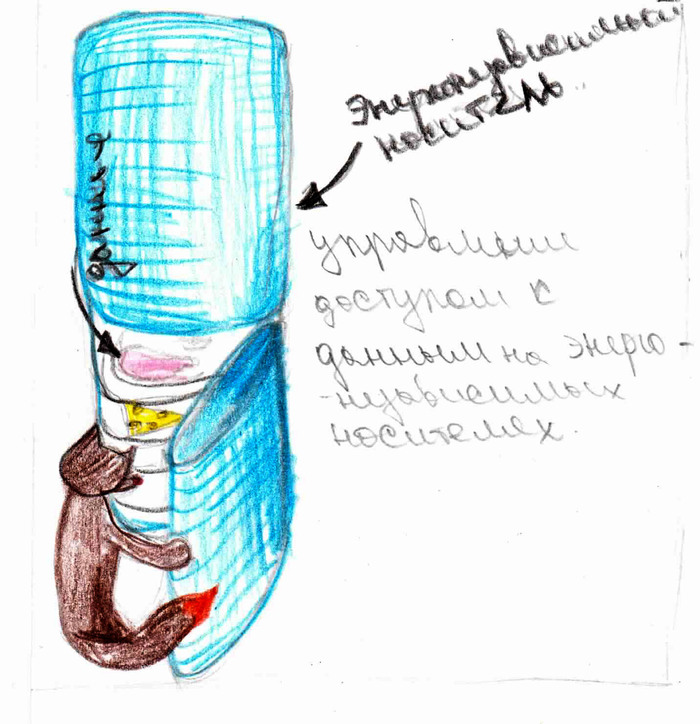 Энергонезависимый
носитель..
данные
управляет
доступом к
данным на энерго-
-независимых
носителях.